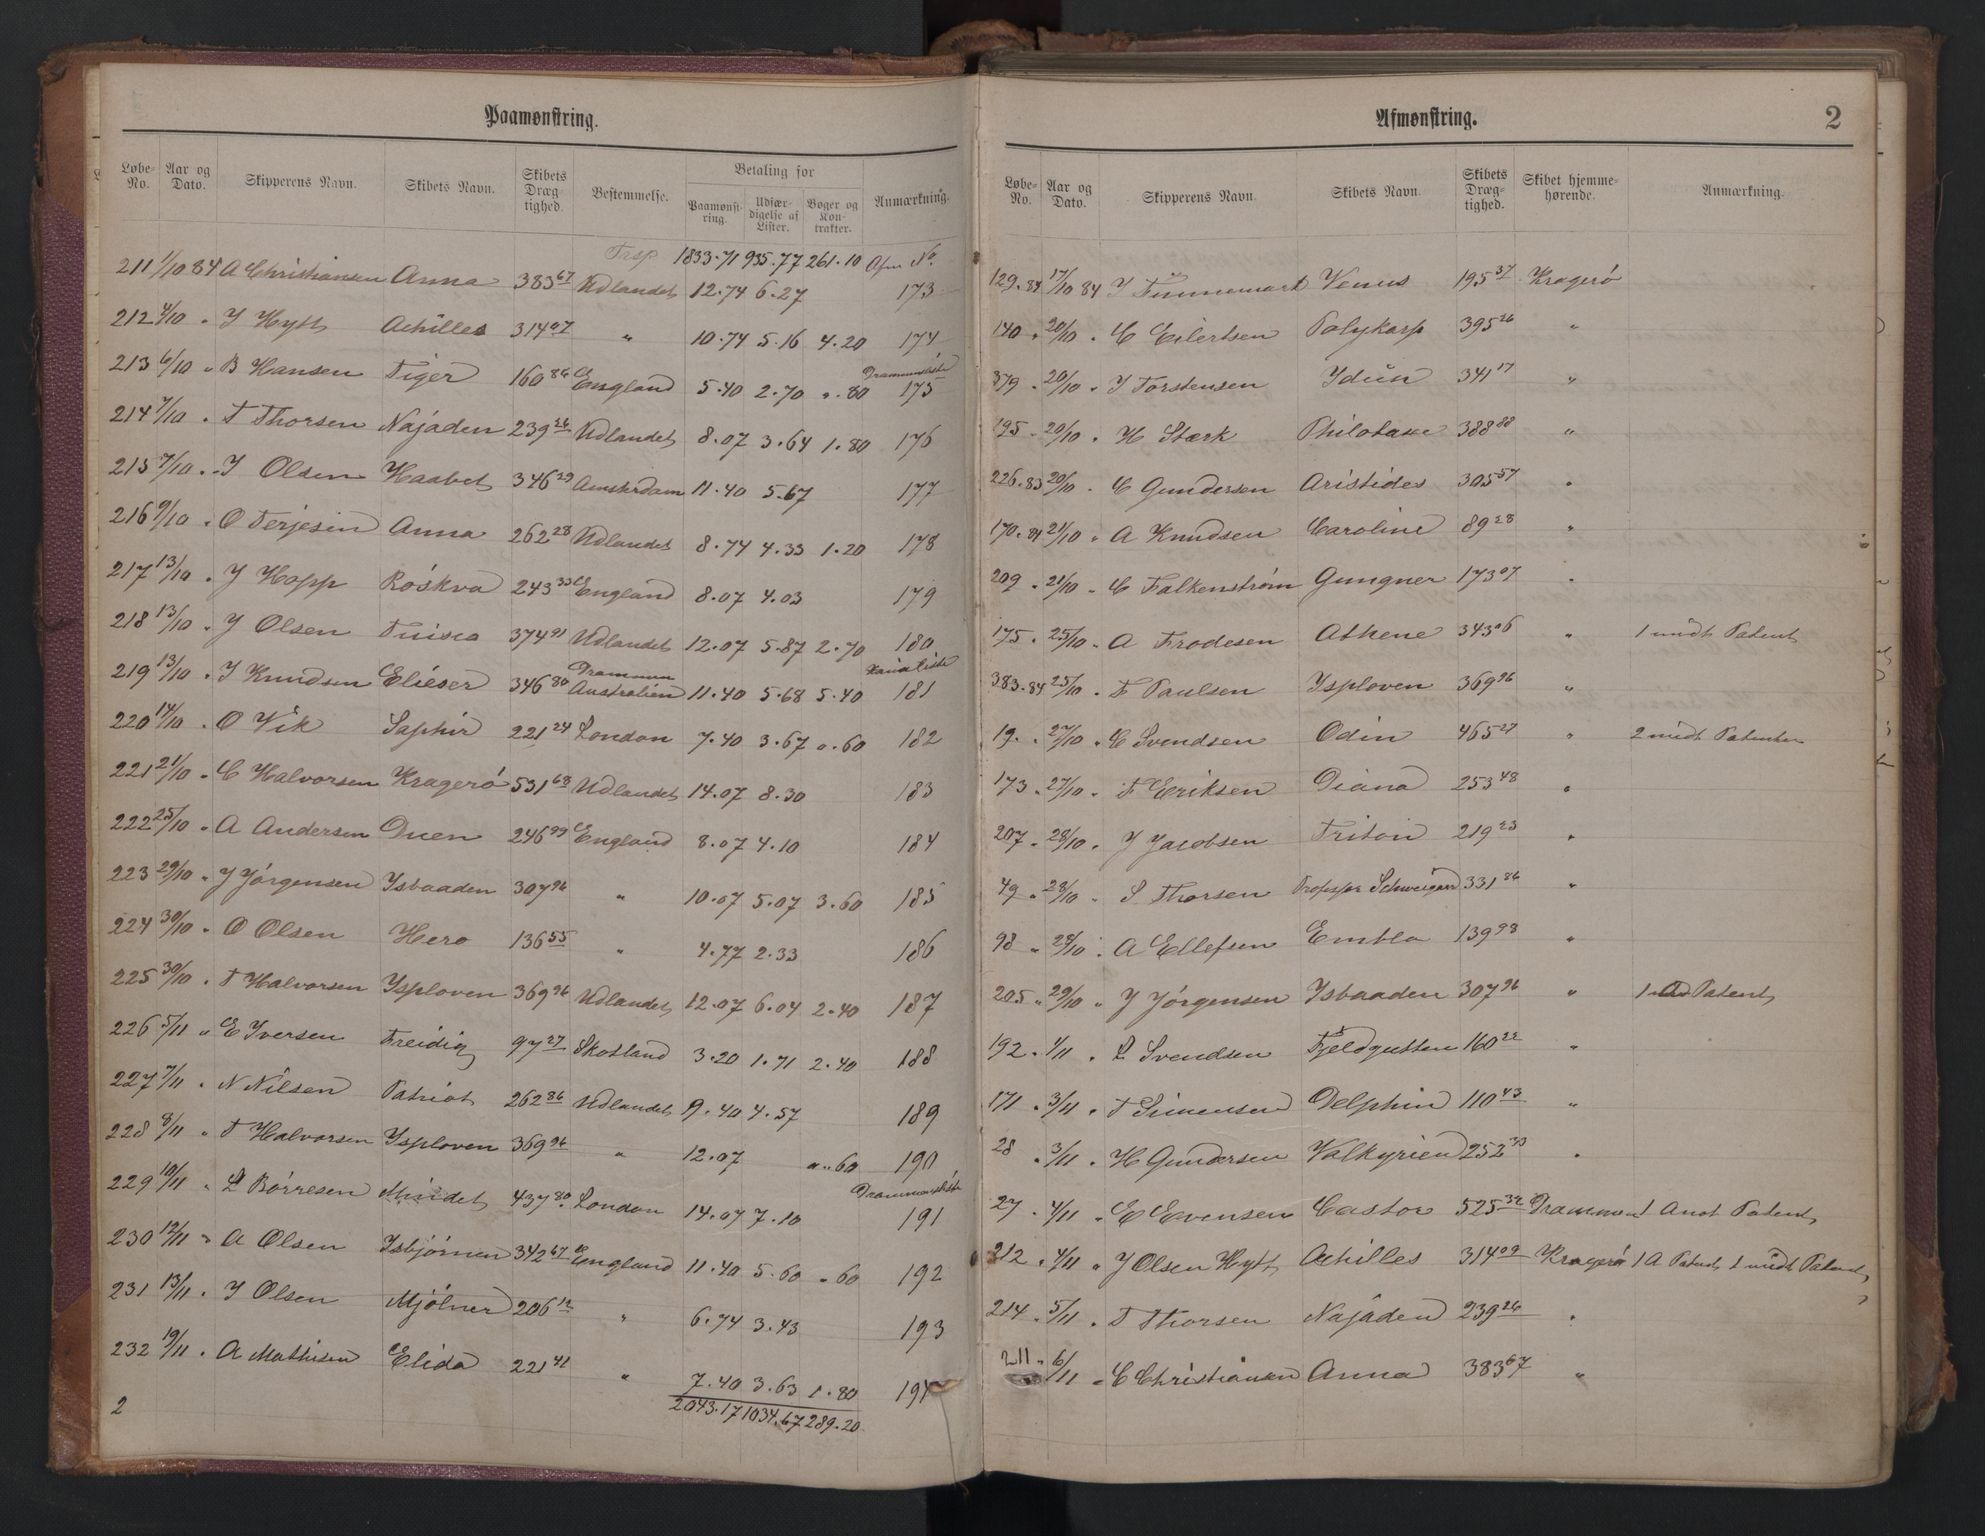 Paamønstring.
Løbe-No. Aar og Dato. Skipperens Navn. Skibets Navn. Skibets Dræg-tighed. Bestemmelse. Betaling for Paamønst-ring. Udfær-digelse af Lister. Bøger og Kon-trakter. Anmærkning.
Trsp 1833.71 935.77 261.10 Afm No.
211 1/10 84 A Christiansen Anna 383 67 Udlandet 12.74 6.27 173
212 4/10 " J Hytt Achilles 314 07 " 10.74 5.16 4.20 174
213 6/10 " B Hansen Tiger 160 86 England 5.40 2.70 ".80 Drammensliste 175
214 7/10 " T Thorsen Najaden 239 26 Udlandet 8.07 3.64 1.80 176
215 7/10 " J Olsen Haabet 346 29 Amsterdam 11.40 5.67 177
216 9/10 " O Terjesen Anna 262 28 Udlandet 8.74 4.33 1.20 178
217 13/10 " J Hopp Röskva 243 33 England 8.07 4.03 179
218 13/10 " J Olsen Tuisco 374 91 Udlandet 12.07 5.87 2.70 180
219 13/10 " J Knudsen Elieser 346 80 Drammen Australien 11.40 5.68 5.40 Xania Liste 181
220 14/10 " O Vik Saphir 221 24 London 7.40 3.67 ".60 182
221 21/10 " C Halvorsen Kragerö 531 68 Udlandet 14.07 8.30 183
222 25/10 " A Andersen Duen 246 99 England 8.07 4.10 184
223 29/10 " J Jörgensen Isbaaden 307 96 " 10.07 5.07 3.60 185
224 30/10 " O Olsen Hero 136 55 " 4.77 2.33 186
225 30/10 " T Halvorsen Ysploven 369 96 Udlandet 12.07 6.04 2.40 187
226 5/11 " E Iversen Freidig 97 27 Skotland 3.20 1.71 2.40 188
227 7/11 " N Nilsen Patriot 262 86 Udlandet 9.40 4.57 189
228 8/11 " T Halvorsen Ysploven 369 96 " 12.07 ".60 190
229 10/11 " L Börresen Mindet 437 80 London 14.07 7.10 Drammensliste 191
230 12/11 " A Olsen Isbjörnen 342 67 England 11.40 5.60 ".60 192
231 13/11 " J Olsen Mjölner 206 12 " 6.74 3.43 193
232 19/11 " A Mathisen Elida 221 41 " 7.40 3.63 1.80 194
2 2043.17 1034.67 289.20
Afmønstring. 2
Løbe-No. Aar og Dato. Skipperens Navn. Skibets Navn. Skibets Dræg-tighed. Skibet hjemme-hørende. Anmærkning.
129.84 17/10 84 J Finnemark Venus 195 37 Kragerö
140 " 20/10 " C Eilertsen Polykarp 395 26 "
379 " 20/10 " J Torstensen Idun 341 17 "
195 " 20/10 " H Stærk Philotaxe 388 88 "
226.83 20/10 " C Gundersen Aristides 305 57 "
170.84 21/10 " A Knudsen Caroline 89 28 "
209 " 21/10 " C Falkenström Gungner 173 07 "
175 " 25/10 " A Frodesen Athene 343 06 " 1 midt Patent
383.84 25/10 " F Paulsen Ysploven 369 96 "
19 " 27/10 " C Svendsen Odin 465 27 " 2 midt Patenter
173 " 27/10 " T Eriksen Diana 253 48 "
207 " 28/10 " J Jacobsen Triton 219 23 "
49 " 28/10 " S Thorsen Professor Schweigaard 331 86 "
98 " 28/10 " A Ellefsen Embla 139 98 "
205 " 29/10 " J Jörgensen Isbaaden 307 96 " 1 Patent
192 " 1/11 " L Svendsen Fjeldgutten 160 22 "
171 " 3/11 " T Simensen Delphin 110 43 "
28 " 3/11 " H Gundersen Valkyrien 252 30 "
27 " 4/11 " E Evensen Castor 525 32 Drammen 1 Anot Patent
212 " 4/11 " J Olsen Hytt Achilles 314 09 Kragerö 1 A Patent, 1 midt Patent
214 " 5/11 " T Thorsen Najaden 239 26 "
211 " 6/11 " C Christiansen Anna 383 67 "